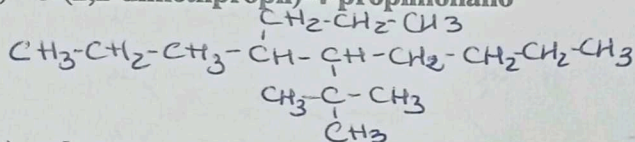 CH2-CH2-CH3
CH3-CH2-CH3-CH-CH-CH2-CH2-CH2-CH3
CH3-C-CH3
CH3